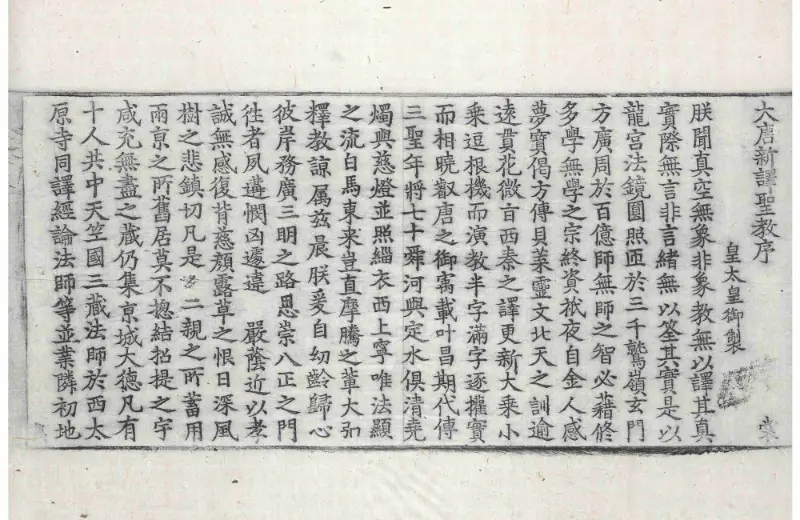 大唐新譯聖教序
皇太皇御製
裳
朕聞真空無象非象教無以譯其真
實際無言非言緒無以筌其實是以
龍宮法鏡圓照匝於三千鷲嶺玄門
方廣周於百億師無師之智必藉修
多學無學之宗終資祇夜自金人感
夢寶偈方傳貝葉靈文北天之訓逾
遠貫花微言西秦之譯更新大乘小
乘逗根機而演教半字滿字逐權實
而相曉叡唐之御寓載叶昌期代傳
三聖年將七十舜河與定水俱清堯
燭與慈燈並照緇衣西上寧唯法顯
之流白馬東来豈直摩騰之輩大弘
釋教諒属玆晨朕爰自幼齡歸心
彼岸務廣三明之路思崇八正之門
往者夙遘憫凶遽違嚴蔭近以孝
誠無感復背慈顔露草之恨日深風
樹之悲鎮切凡是二親之所蓄用
兩京之所舊居莫不揔結招提之宇
咸充無盡之藏仍集京城大德凡有
十人共中天竺國三藏法師於西太
原寺同譯經論法師等並業隣初地